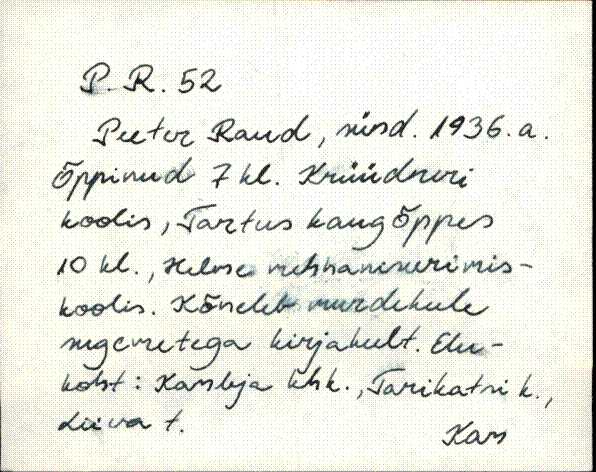 P. R. 52
Peeter Raud, sünd. 1936. a.
Õppinud 7 kl. Krüüdneri
koolis, Tartus kaugõppes
10 kl., Helme mehhaniseerimis-
koolis. Kõneleb murdekule
sugemetega kirjakeelt. Elu-
koht: Kambja khk., Tarikatsi k.,
Liiva t.
Kam